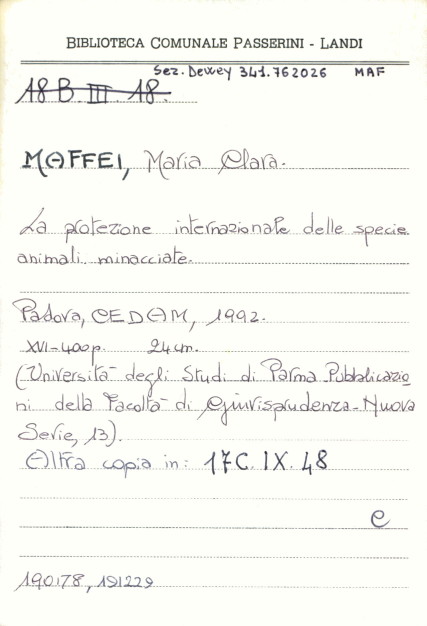 BIBLIOTECA COMUNALE PASSERINI - LANDI
Sez. Dewey 341.762026 MAF
18 B. III. 18.
MAFFEI, Maria Clara.
La protezione internazionale delle specie
animali minacciate.
Padova, CEDAM, 1992.
XVI-400p. 24 cm.
(Università degli Studi di Parma. Pubblicazio
ni della Facoltà di Giurisprudenza-Nuova
Serie, 13).
Altra copia in: 17C. IX. 48
C
190178, 191229